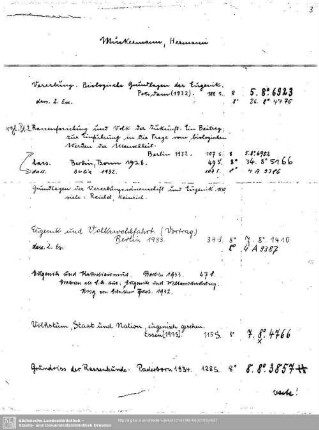 3
Muckermann, Hermann
Vererbung. Biologische Grundlagen der Eugenik.
Potsdam (1932). 188 S. 8° 5. 8° 6323
dass. 2. Ex. 8° 36. 8° 4475
Rassenforschung und Volk der Zukunft. Ein Beitrag
zur Einführung in die Frage vom biologischen
Werden der Menschheit.
Berlin 1932. 107 S. 8° 5. 8° 6922
dass. Berlin, Bonn 1928. 8° 34. 8° 5166
dass. 8° 4 A 9386
Grundlagen der Vererbungswissenschaft und Eugenik.
siehe: Reichel, Heinrich.
Eugenik und Volkswohlfahrt (Vortrag)
Berlin 1933. 8° 7. 8° 1410
dass. 2. Ex. 8° 4 A 9387
Eugenik und Katholizismus. Berlin 1933. 47 S.
Volkstum, Staat und Nation eugenisch gesehen.
Essen (1933) 113 S. 8° 7. 8° 4766
Grundriss der Rassenkunde. Paderborn 1934. 128 S. 8° 8. 8° 3857
verte!